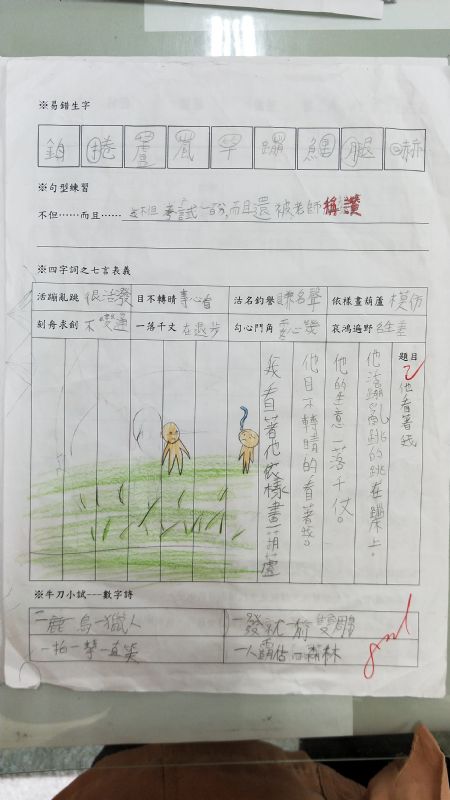 ※易錯生字
鉑 捲 蘆 嵐 罕 蹦 鰡 腿 嚇
※句型練習
不但……而且…… 我不但考試一百分,而且還被老師稱讚
※四字詞之七言表義
活蹦亂跳 很活發 目不轉睛 專心看 沽名釣譽 賺名聲 依樣畫葫蘆 模仿
刻舟求劍 不變通 一落千丈 在退步 勾心鬥角 哀鴻遍野
題目
他看著我
他活蹦亂跳的跳在樂上。
他的生意一落千仗。
他目不轉睛的看著我。
我看著他依樣畫葫蘆
※牛刀小試---數字詩
一鹿一鳥一獵人
一發就一箭雙鵰
一拍一擊一直笑
一人霸佔一森林